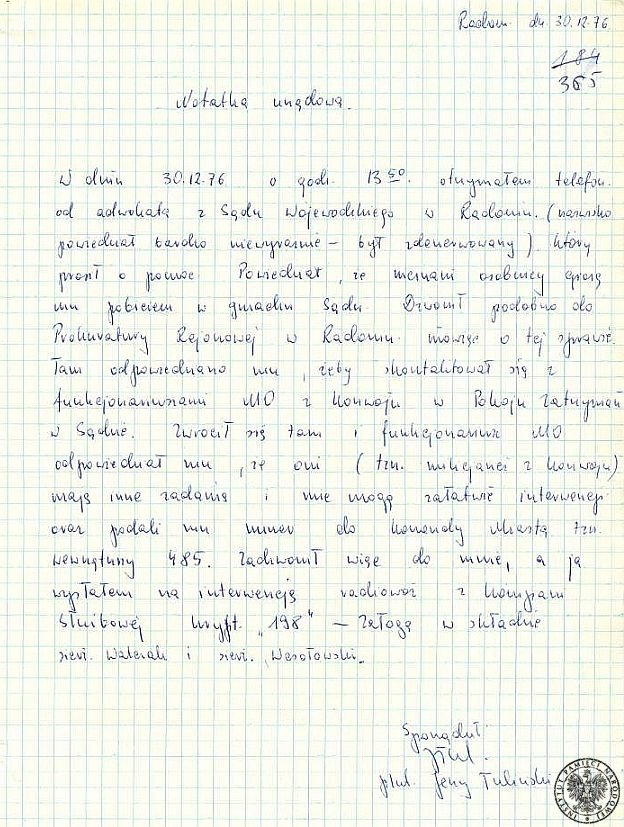 Radom. dn. 30.12.76
184
365
Notatka urzędowa.
W dniu 30.12.76 o godz. 13 50. otrzymałem telefon.
od adwokata z Sądu Wojewódzkiego w Radomiu. (nazwisko
powiedział bardzo niewyraźnie – był zdenerwowany). który
prosił o pomoc. Powiedział, że nieznani osobnicy grożą
mu pobiciem w gmachu Sądu. Dzwonił podobno do
Prokuratury Rejonowej w Radomiu mówiąc o tej sprawie.
Tam odpowiedziano mu, żeby skontaktował się z
funkcjonariuszami MO z konwoju w Pokoju Zatrzymań
w Sądzie. Zwrócił się tam i funkcjonariusz MO
odpowiedział mu, że oni (tzn. milicjanci z konwoju)
mają inne zadania i nie mogą załatwić interwencji
oraz podali mu numer do Komendy Miasta tzn.
wewnętrzny 485. Zadzwonił więc do mnie, a ja
wysłałem na interwencję radiowóz z Kompani
Służbowej krypt. „198" – załoga w składzie
sierż. Walczak i sierż. Wesołowski.
Sporządził
plut. Jerzy Tuliński
INSTYTUT PAMIĘCI NARODOWEJ